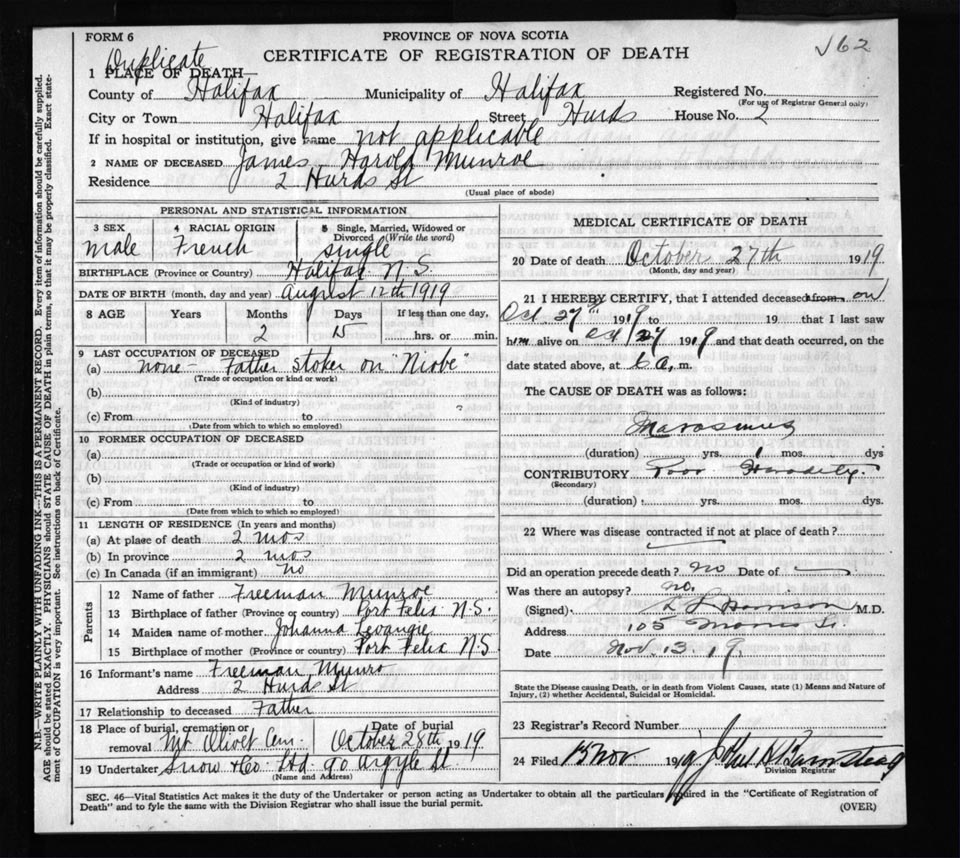 FORM 6
PROVINCE OF NOVA SCOTIA
CERTIFICATE OF REGISTRATION OF DEATH
162
Duplicate
1 PLACE OF DEATH—
County of Halifax Municipality of Halifax Registered No.
(For use of Registrar General only)
City or Town Halifax Street Hurds House No. 2
If in hospital or institution, give name not applicable
2 NAME OF DECEASED James Harold Munroe
Residence 2 Hurds St
(Usual place of abode)
PERSONAL AND STATISTICAL INFORMATION
3 SEX 4 RACIAL ORIGIN 5 Single, Married, Widowed or Divorced (Write the word)
male French single
BIRTHPLACE (Province or Country) Halifax N.S.
DATE OF BIRTH (month, day and year) August 12th 1919
8 AGE Years Months Days If less than one day,
2 15 hrs. or min.
9 LAST OCCUPATION OF DECEASED
(a) none - Father stoker on "Niobe"
(Trade or occupation or kind or work)
(b)
(Kind of industry)
(c) From to
(Date from which to which so employed)
10 FORMER OCCUPATION OF DECEASED
(a)
(Trade or occupation or kind of work)
(b)
(Kind of industry)
(c) From to
(Date from which to which so employed)
11 LENGTH OF RESIDENCE (In years and months)
(a) At place of death 2 mos
(b) In province 2 mos
(c) In Canada (if an immigrant) No
Parents
12 Name of father Freeman Munroe
13 Birthplace of father (Province or country) Port Felix N.S.
14 Maiden name of mother Johanna Levangie
15 Birthplace of mother (Province or country) Port Felix N.S
16 Informant's name Freeman Munro
Address 2 Hurds St
17 Relationship to deceased Father
18 Place of burial, cremation or removal Mt Olivet Cem. Date of burial October 28th 1919
19 Undertaker Snow & Co Ltd. 90 Argyle St
(Name and Address)
MEDICAL CERTIFICATE OF DEATH
20 Date of death October 27th 1919
(Month, day and year)
21 I HEREBY CERTIFY, that I attended deceased from on
Oct. 27th 1919 to 19 that I last saw
him alive on Oct 27 1919 and that death occurred, on the
date stated above, at 6 a, m.
The CAUSE OF DEATH was as follows:
Marasmus
(duration) yrs. 1 mos. dys
CONTRIBUTORY Poor Heredity.
(Secondary)
(duration) yrs. mos. dys.
22 Where was disease contracted if not at place of death?
Did an operation precede death? no Date of
Was there an autopsy? no.
(Signed) M.D.
Address 105 Morris St.
Date Nov. 13. 19.
State the Disease causing Death, or in death from Violent Causes, state (1) Means and Nature of Injury, (2) whether Accidental, Suicidal or Homicidal.
23 Registrar's Record Number
24 Filed 15 Nov 19
Division Registrar
SEC. 46—Vital Statistics Act makes it the duty of the Undertaker or person acting as Undertaker to obtain all the particulars required in the "Certificate of Registration of
Death" and to fyle the same with the Division Registrar who shall issue the burial permit.
(OVER)
N.B.—WRITE PLAINLY WITH UNFADING INK—THIS IS A PERMANENT RECORD. Every item of information should be carefully supplied.
AGE should be stated EXACTLY. PHYSICIANS should STATE CAUSE OF DEATH in plain terms, so that it may be properly classified. Exact state-
ment of OCCUPATION is very important. See instructions on back of Certificate.